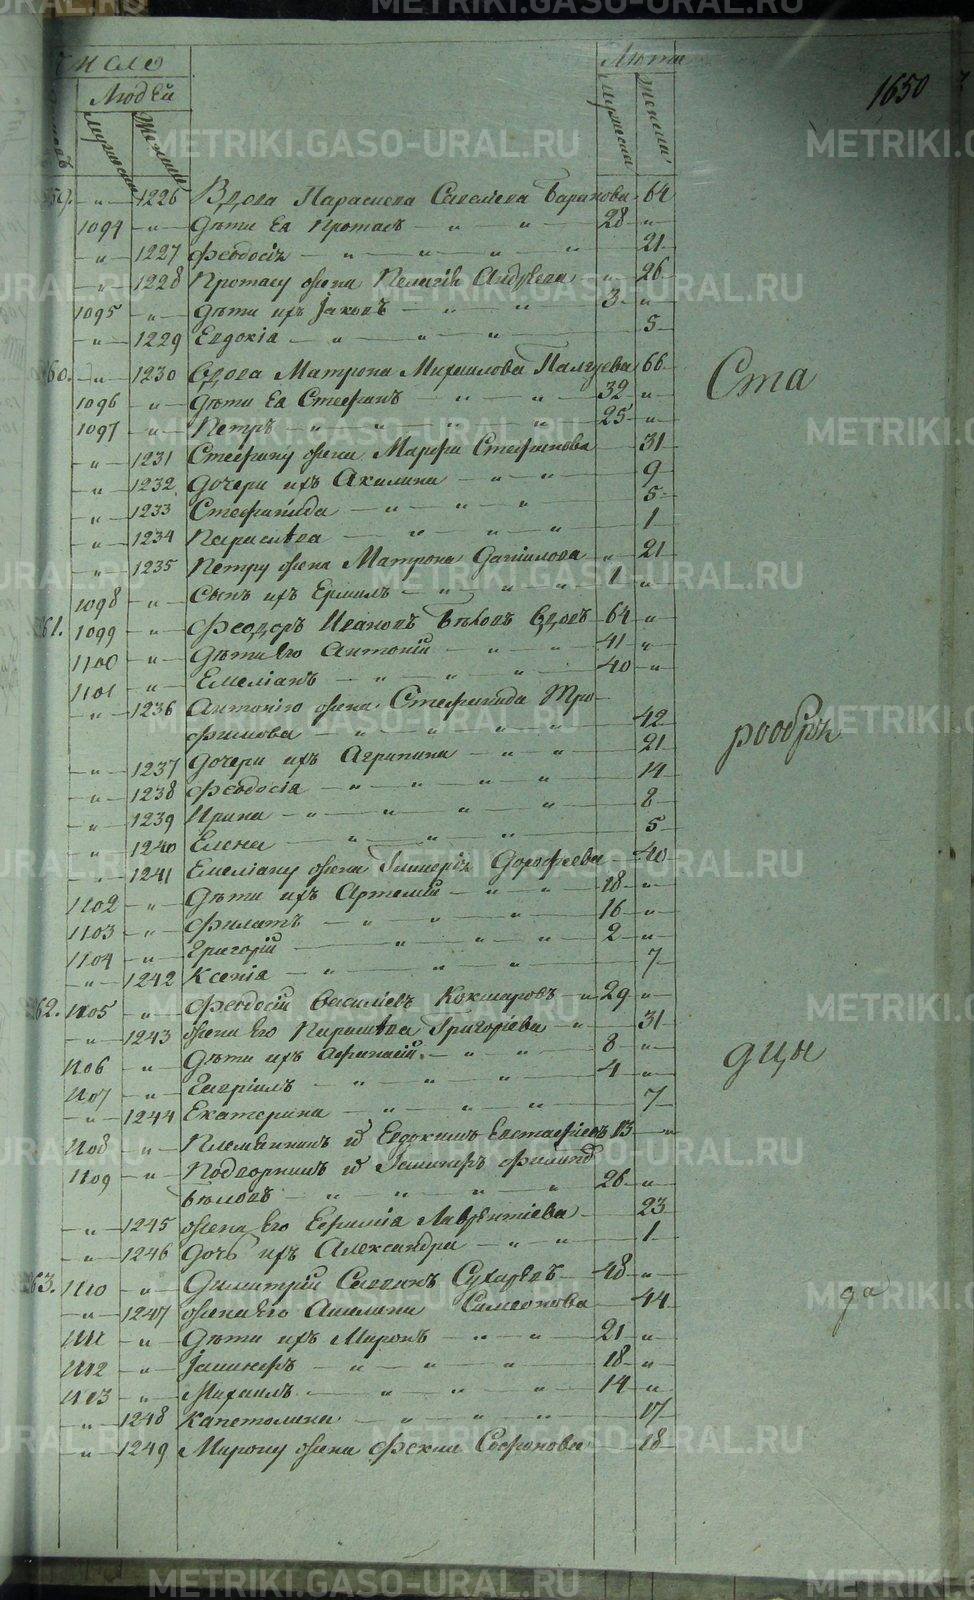 число Лѣта 1650
Людей
мужеска женска мужеска женска
59. " 1226 Вдова Параскева Савельева Баранова 64
1094 " Дѣти Ея Протасъ " " 28 "
" 1227 Феодосія " " " " 21
" 1228 Протасу жена Пелагія Андреева " 26
1095 " Дѣти ихъ Іаковъ " " 3 "
" 1229 Евдокія " " " 5
60. " 1230 Вдова Матрона Михаилова Палкуева 66
1096 " Дѣти Ея Стефанъ " " 32 "
1097 " Петръ " " " " 25 "
" 1231 Стефану жена Марфа Стефанова 31
" 1232 Дочери ихъ Акилина " " 9
" 1233 Стефанида " " " 5
" 1234 Параскева " " " 1
" 1235 Петру жена Матрона Даніилова " 21
1098 " Сынъ ихъ Ермилъ " " " 1 "
61. 1099 " Феодоръ Ивановъ Бѣловъ Вдовъ 64 "
1100 " Дѣти Его Антоній " " 41 "
1101 " Емеліанъ " " " 40 "
" 1236 Антонію жена Стефанида Тро-
фимова " " " " 42
" 1237 Дочери ихъ Агрипина " " 21
" 1238 Феодосія " " " " 14
" 1239 Ирина " " " " 8
" 1240 Елена " " " 5
" 1241 Емеліану жена Гликерія Дорофеева 40
1102 " Дѣти ихъ Артемій " " 18 "
1103 " Филатъ " " " 16 "
1104 " Григорій " " " 2 "
" 1242 Ксенія " " " 7
62. 1105 " Феодосій Василіевъ Кокшаровъ " 29 "
" 1243 жена Его Параскева Григоріева " 31
1106 " Дѣти ихъ Афанасій " " 8 "
1107 " Гавріилъ " " " 4 "
" 1244 Екатерина " " " 7
1108 " Племянникъ Евдокимъ Евстафіевъ 13 "
1109 " Подворникъ
Бѣловъ " " " " 26 "
" 1245 жена Его Евфимія Лаврентіева 23
" 1246 Дочь ихъ Александра " " 1
63. 1110 " Димитрій Савинъ Сухаревъ 48 "
" 1247 жена Его Акилина Симеонова 44
1111 " Дѣти ихъ Миронъ " " 21 "
1112 " " " " 18 "
1113 " Михаилъ " " " 14 "
" 1248 Капетолина " " " 17
" 1249 Мирону жена Фекла Софонова 18
Ста
дцы
да